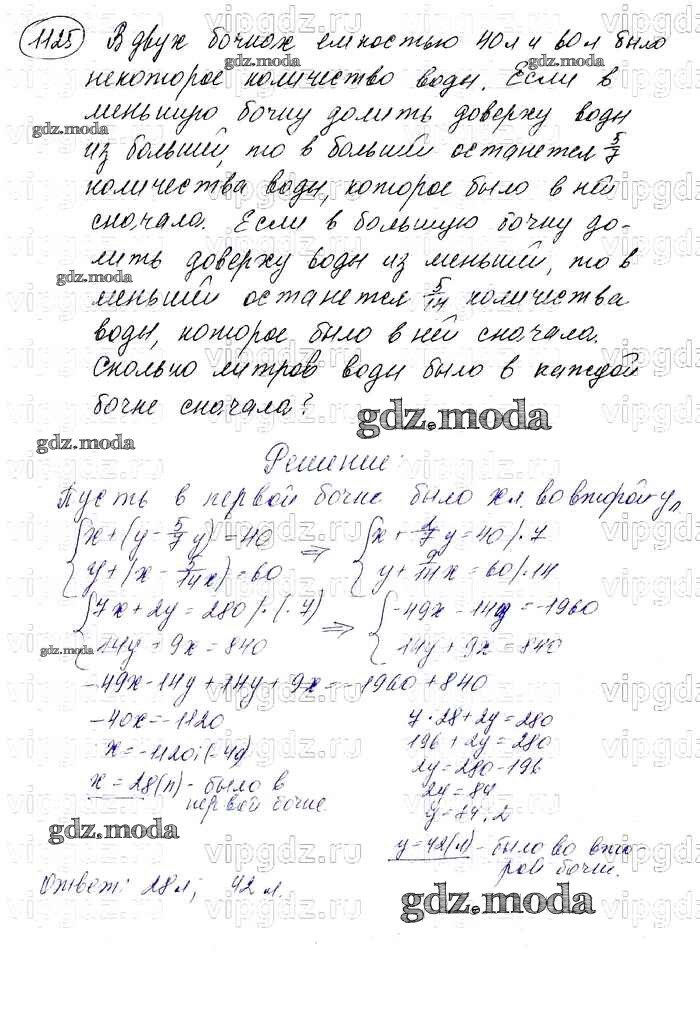 1125 В двух бочках емкостью 40 л и 60 л было
некоторое количество воды. Если в
меньшую бочку долить доверху воды
из большей, то в большей останется 5/7
количества воды, которое было в ней
сначала. Если в большую бочку до-
лить доверху воды из меньшей, то в
меньшей останется 5/14 количества
воды, которое было в ней сначала.
Сколько литров воды было в каждой
бочке сначала?
Решение:
Пусть в первой бочке было х л. во второй - у л
{х+(у-5/7у)=40 => {х+2/7у=40/·7
{у+(х-5/14х)=60 {у+9/14х=60/·14
{7х+2у=280/·(-7) => {-49х-14у=-1960
{14у+9х=840 {14у+9х=840
-49х-14у+14у+9х=-1960+840
-40х=-1120
х=-1120:(-40)
х=28(л) - было в
первой бочке.
7·28+2у=280
196+2у=280
2у=280-196
2у=84
у=84:2
у=42(л) - было во вто-
рой бочке.
Ответ: 28л; 42 л.
gdz.moda
vipgdz.ru